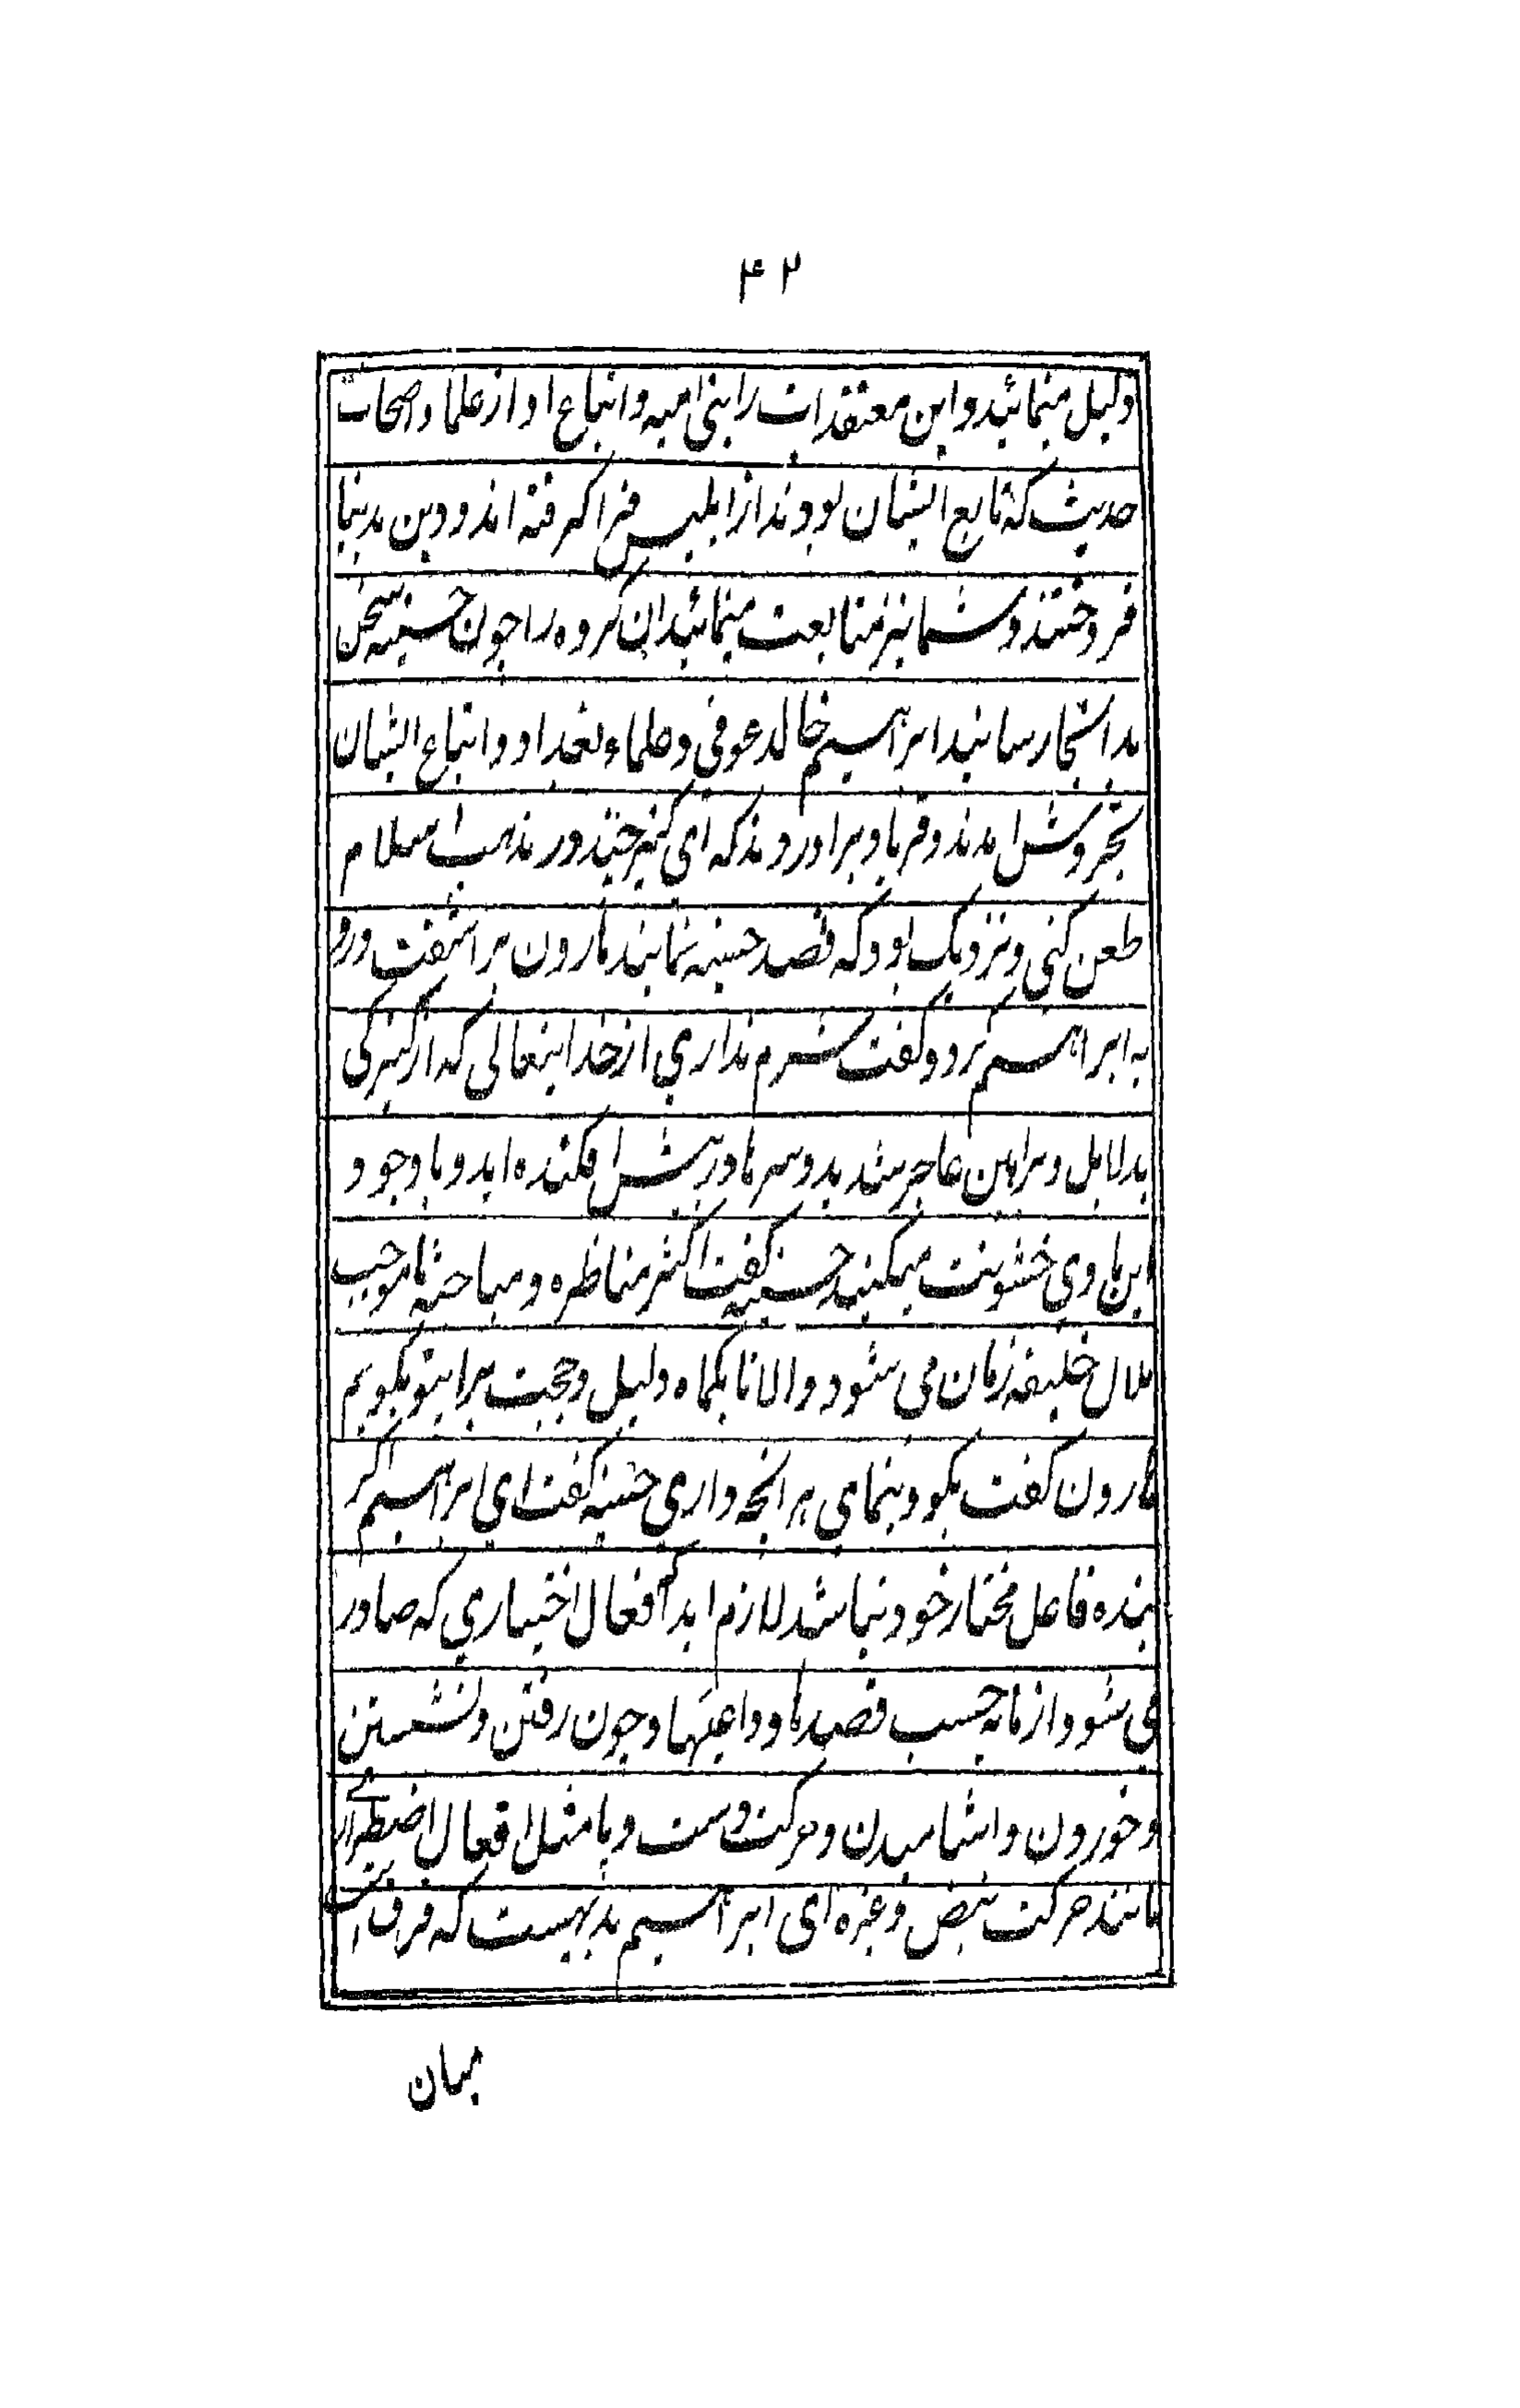 ۴۲
دلیل مینمائید و این معتقدات را بنی امیه و اتباع او از علما و اصحاب
حدیث که تابع ایشان بودند از ابلیس فرا گرفته اند و دین بدنیا
فروختند و شما نیز متابعت مینمائید ان گروه را چون حسنیه سخن
بدانجا رسانید ابراهیم خالد عوفی و علماء بغداد و اتباع ایشان
بخروش امدند و فریاد براوردند که ای کنیز چند در مذهب اسلام
طعن کنی و نزدیک بود که قصد حسنیه نمایند هارون براشفت و رو
به ابراهیم کرد و گفت شرم نداری از خدایتعالی که از کنیزکی
بدلایل و براهین عاجز شدید و سرها در پیش افکنده اید و با وجود
این با وی خشونت میکنید حسنیه گفت اکثر مناظره و مباحثه ما موجب
ملال خلیفه زمان می شود والا تا یکماه دلیل و حجت براینو بگویم
هارون گفت بگو و بنمای هر انچه داری حسنیه گفت ای ابراهیم اگر
بنده فاعل مختار خود نباشد لازم اید که افعال اختیاری که صادر
می شود از ما به حسب قصدها و داعیتها و چون رفتن و نشستن
و خوردن و اشامیدن و حرکت دست و پا مثل افعال اضطراری
مانند حرکت نبض و غیره ای ابراهیم بدیهیست که فرق است
میان